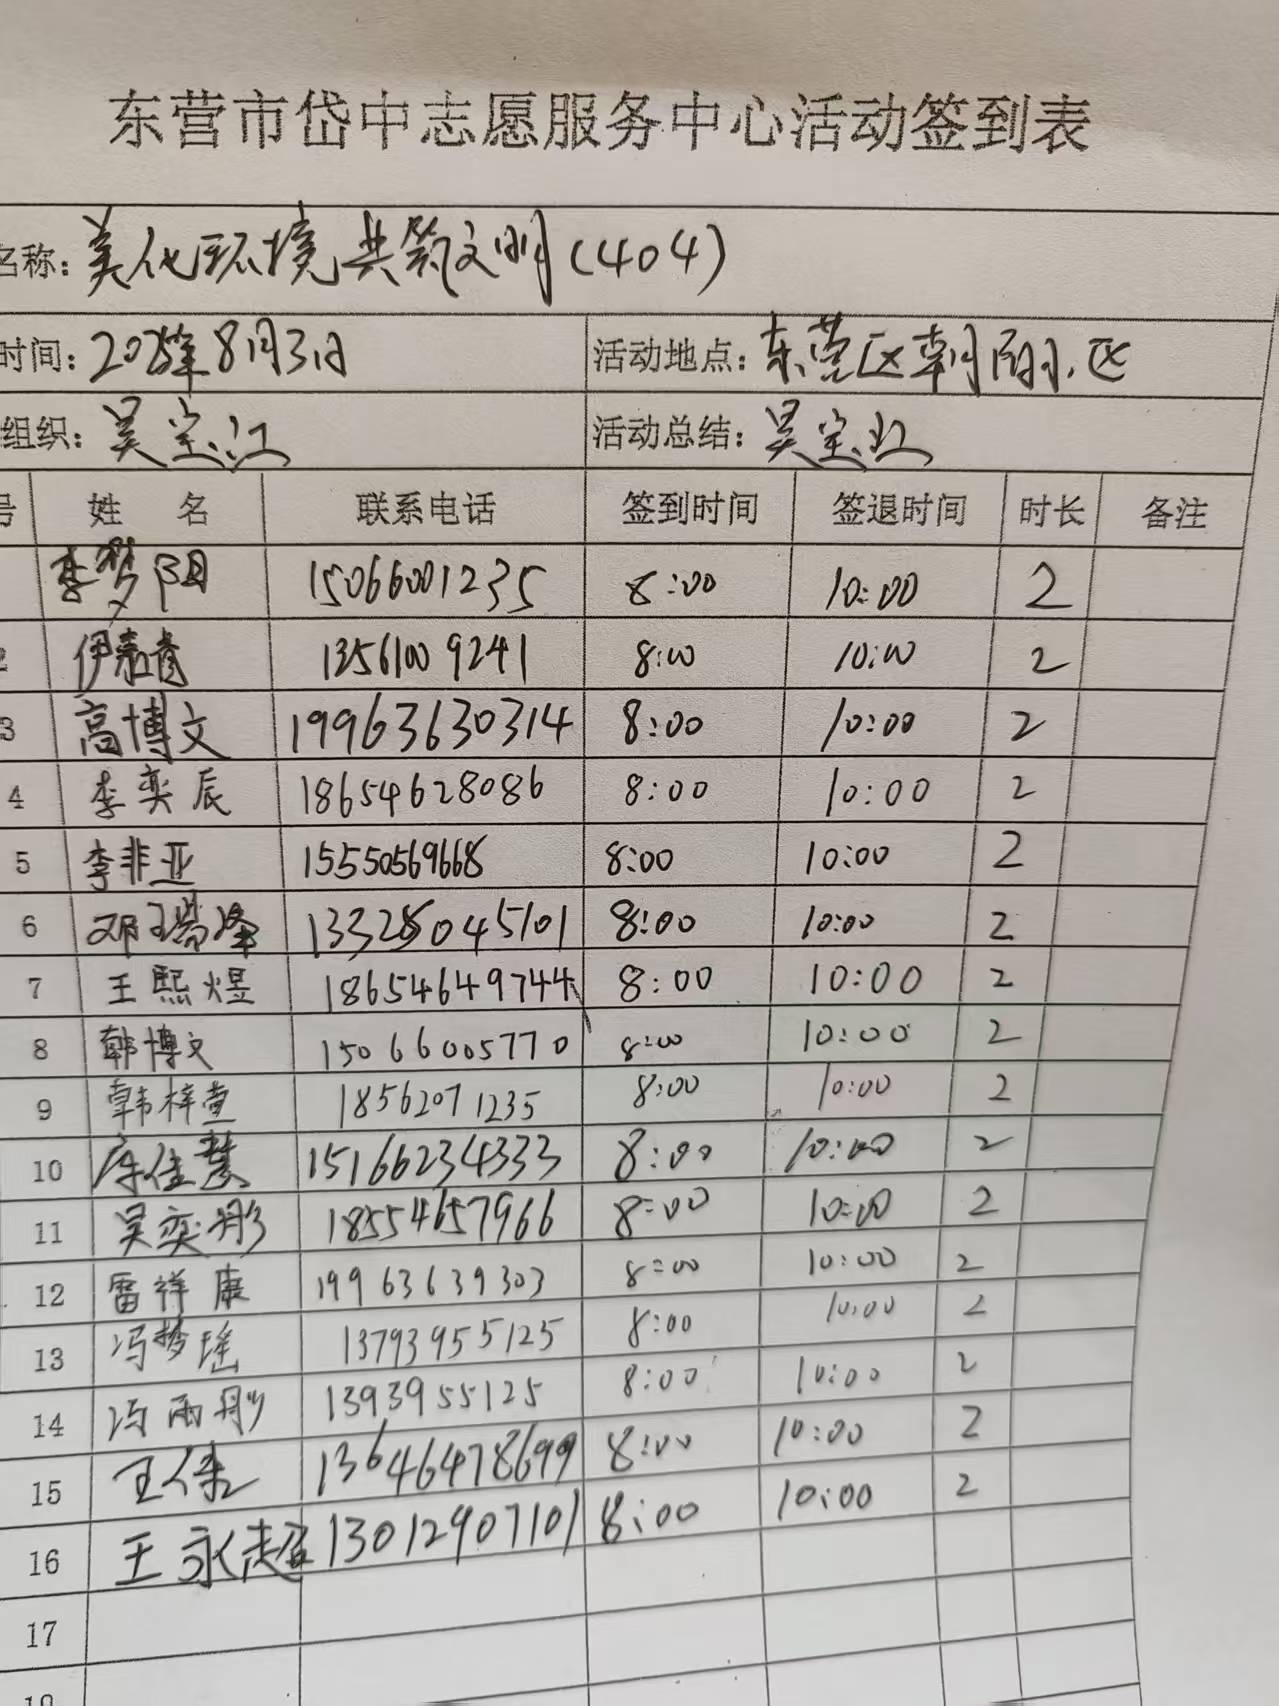 东营市岱中志愿服务中心活动签到表
名称：美化环境共筑文明(404)
时间：2025年8月3日 活动地点：东营区朝阳小区
组织：吴宝江 活动总结：吴宝江
号 姓 名 联系电话 签到时间 签退时间 时长 备注
李梦阳 15066001235 8:00 10:00 2
2 伊嘉 13561009241 8:00 10:00 2
3 高博文 19963630314 8:00 10:00 2
4 李奕辰 18654628086 8:00 10:00 2
5 李非亚 15550569668 8:00 10:00 2
6 邓瑞峰 8:00 10:00 2
7 王熙煜 18654649744 8:00 10:00 2
8 韩博文 15066005770 8:00 10:00 2
9 韩梓萱 18562071235 8:00 10:00 2
10 佳慧 15166234333 8:00 10:00 2
11 吴奕彤 18554657966 8:00 10:00 2
12 雷祥康 19963639303 8:00 10:00 2
13 冯梦瑶 13793955125 8:00 10:00 2
14 冯雨彤 1393955125 8:00 10:00 2
15 王 13646478699 8:00 10:00 2
16 王永超 13012907101 8:00 10:00 2
17
18